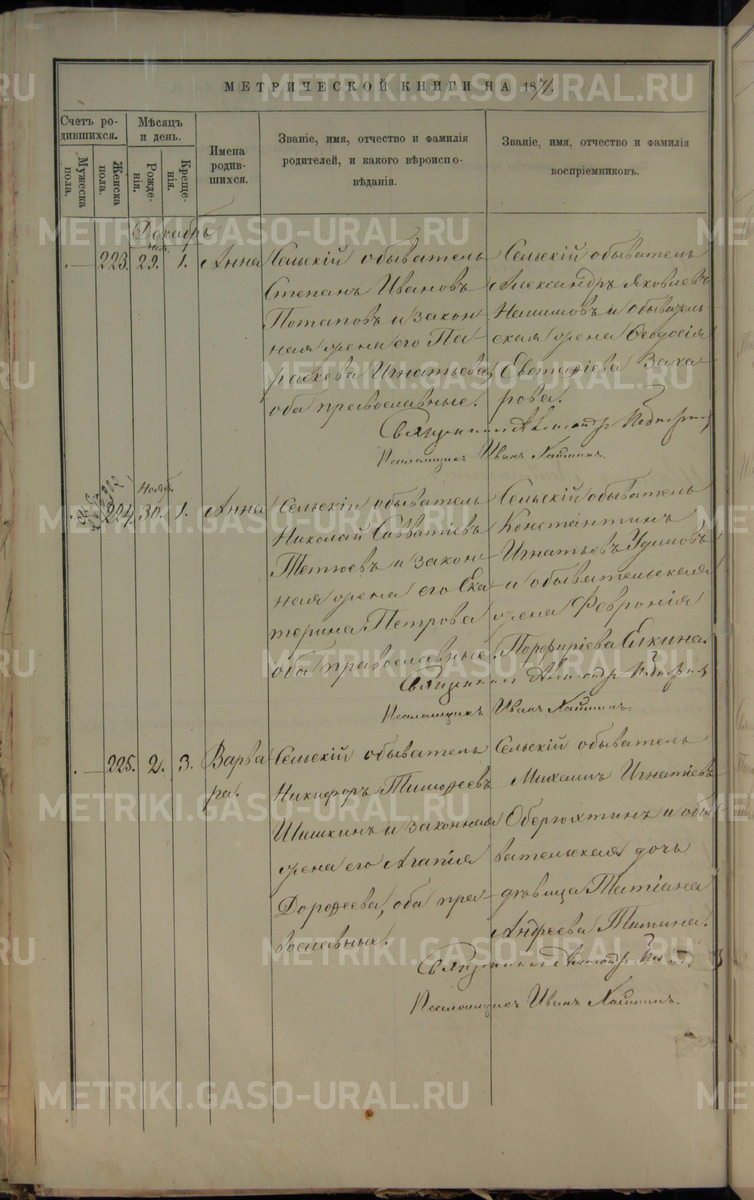 МЕТРИЧЕСКОЙ КНИГИ НА 1871.
Счетъ родившихся.
Мужеска пола.
Женска пола.
Мѣсяцъ и день.
Рожденія.
Крещенія.
Имена родившихся.
Званіе, имя, отчество и фамилія родителей, и какого вѣроисповѣданія.
Званіе, имя, отчество и фамилія воспріемниковъ.
Декабрь
223. 29. 1. Анна
Сельскій обыватель
Степанъ Ивановъ
Потаповъ и закон-
ная жена его Па-
раскева Игнатьева,
оба православные.
Сельскій обыватель
Александръ Яковлевъ
и обыватель-
ская жена
Евстафіева Заха-
рова.
Священникъ
Псаломщикъ Иванъ
Нояб.
224. 30. 1. Анна
Сельскій обыватель
Николай Савватіевъ
Тетюевъ и закон-
ная жена его Ека-
терина Петрова
оба православные
Сельскій обыватель
Константинъ
Игнатьевъ Удимовъ
и обывательская
жена Февронія
Порфиріева Елкина.
Священникъ
Псаломщикъ Иванъ
225. 2. 3. Варва
ра.
Сельскій обыватель
Никифоръ Тимофеевъ
Шишкинъ и законная
жена его Агапія
Дорофеева, оба пра-
вославные.
Сельскій обыватель
Михаилъ Игнатіевъ
Оберюхтинъ и обы
вательская дочь
дѣвица Татіана
Андреева Тимина.
Священникъ
Псаломщикъ Иванъ
METRIKI.GASO-URAL.RU